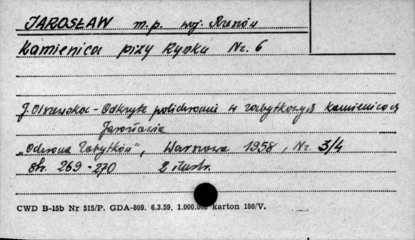 JAROSŁAW m.p. woj. Rzeszów
Kamienica przy Rynku Nr. 6
J. Olszewska - Odkryte polichromie w zabytkowych kamienicach
Jarosławia
„Ochrona Zabytków", Warszawa 1958, Nr. 3/4
str. 269-270 2 ilustr.
CWD B-15b Nr 515/P. GDA-869. 6.3.59. 1.000.000 karton 180/V.